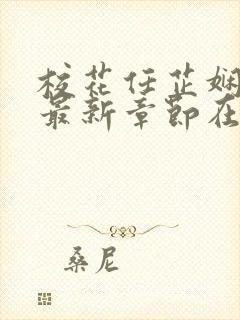 校花任芷娴
最新章节在
桑尼